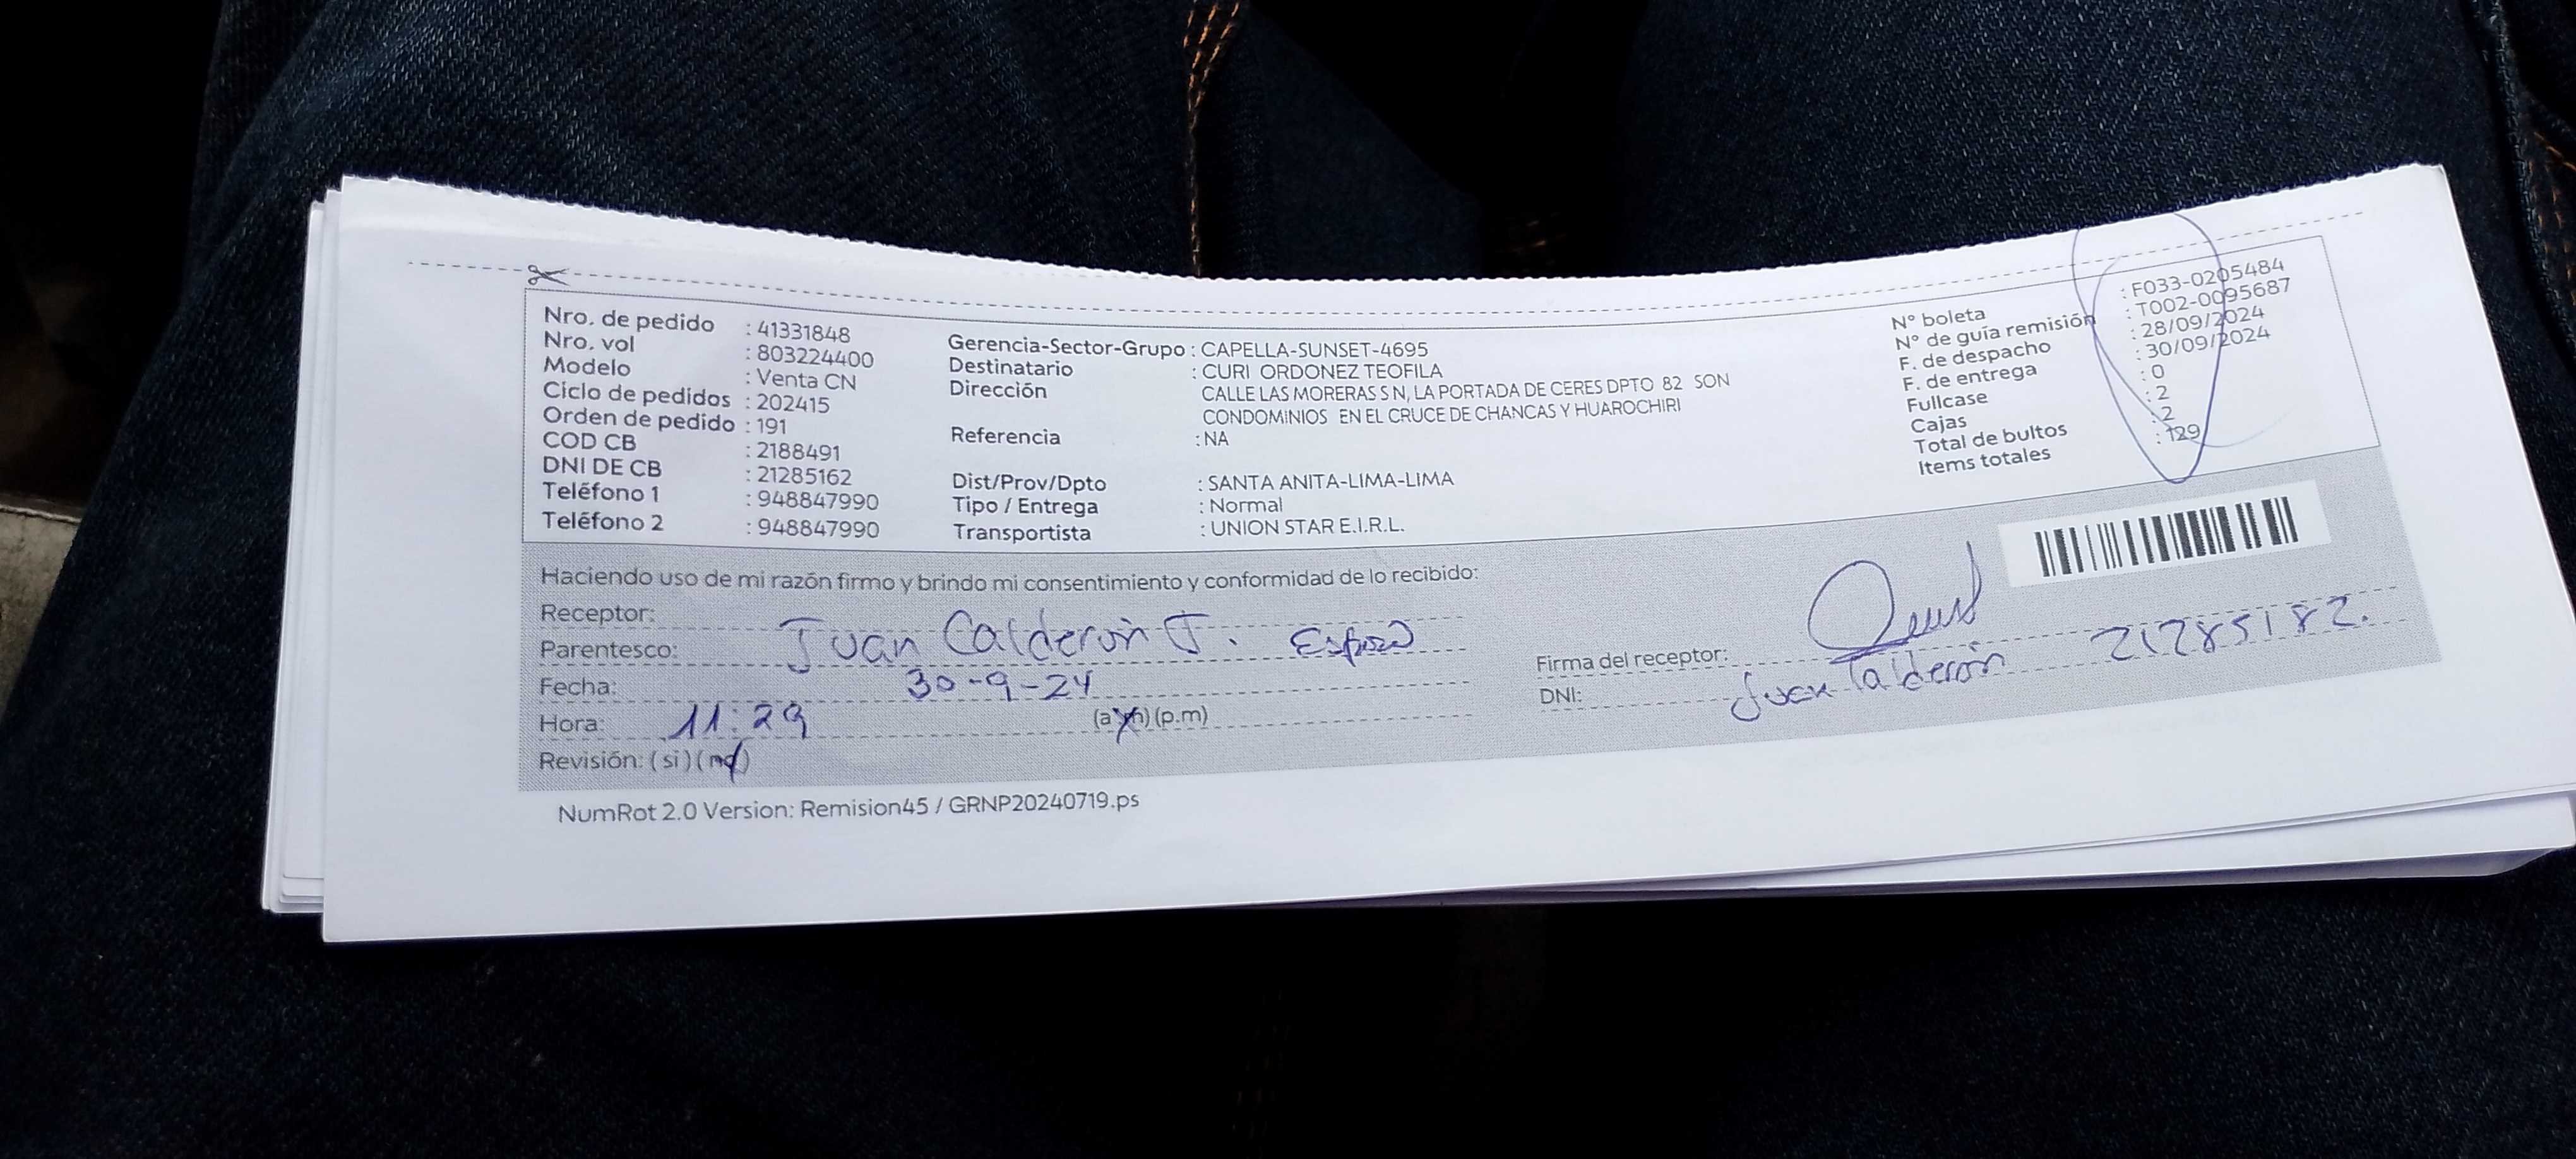 Nro. de pedido : 41331848
Nro. vol : 803224400
Modelo : Venta CN
Ciclo de pedidos : 202415
Orden de pedido : 191
COD CB : 2188491
DNI DE CB : 21285162
Teléfono 1 : 948847990
Teléfono 2 : 948847990
Gerencia-Sector-Grupo : CAPELLA-SUNSET-4695
Destinatario : CURI ORDONEZ TEOFILA
Dirección CALLE LAS MORERAS S N, LA PORTADA DE CERES DPTO 82 SON
CONDOMINIOS EN EL CRUCE DE CHANCAS Y HUAROCHIRI
Referencia : NA
Dist/Prov/Dpto : SANTA ANITA-LIMA-LIMA
Tipo / Entrega : Normal
Transportista : UNION STAR E.I.R.L.
N° boleta : F033-0205484
N° de guía remisión : T002-0095687
F. de despacho : 28/09/2024
F. de entrega : 30/09/2024
Fullcase : 0
Cajas : 2
Total de bultos : 2
Items totales : 129
Haciendo uso de mi razón firmo y brindo mi consentimiento y conformidad de lo recibido:
Receptor: Juan Calderón J. Esposo
Parentesco:
Fecha: 30-9-24
Hora: 11:29 (a.m) (p.m)
Revisión: (si) (no)
Firma del receptor:
DNI: Juan Calderón 21285182.
NumRot 2.0 Version: Remision45 / GRNP20240719.ps